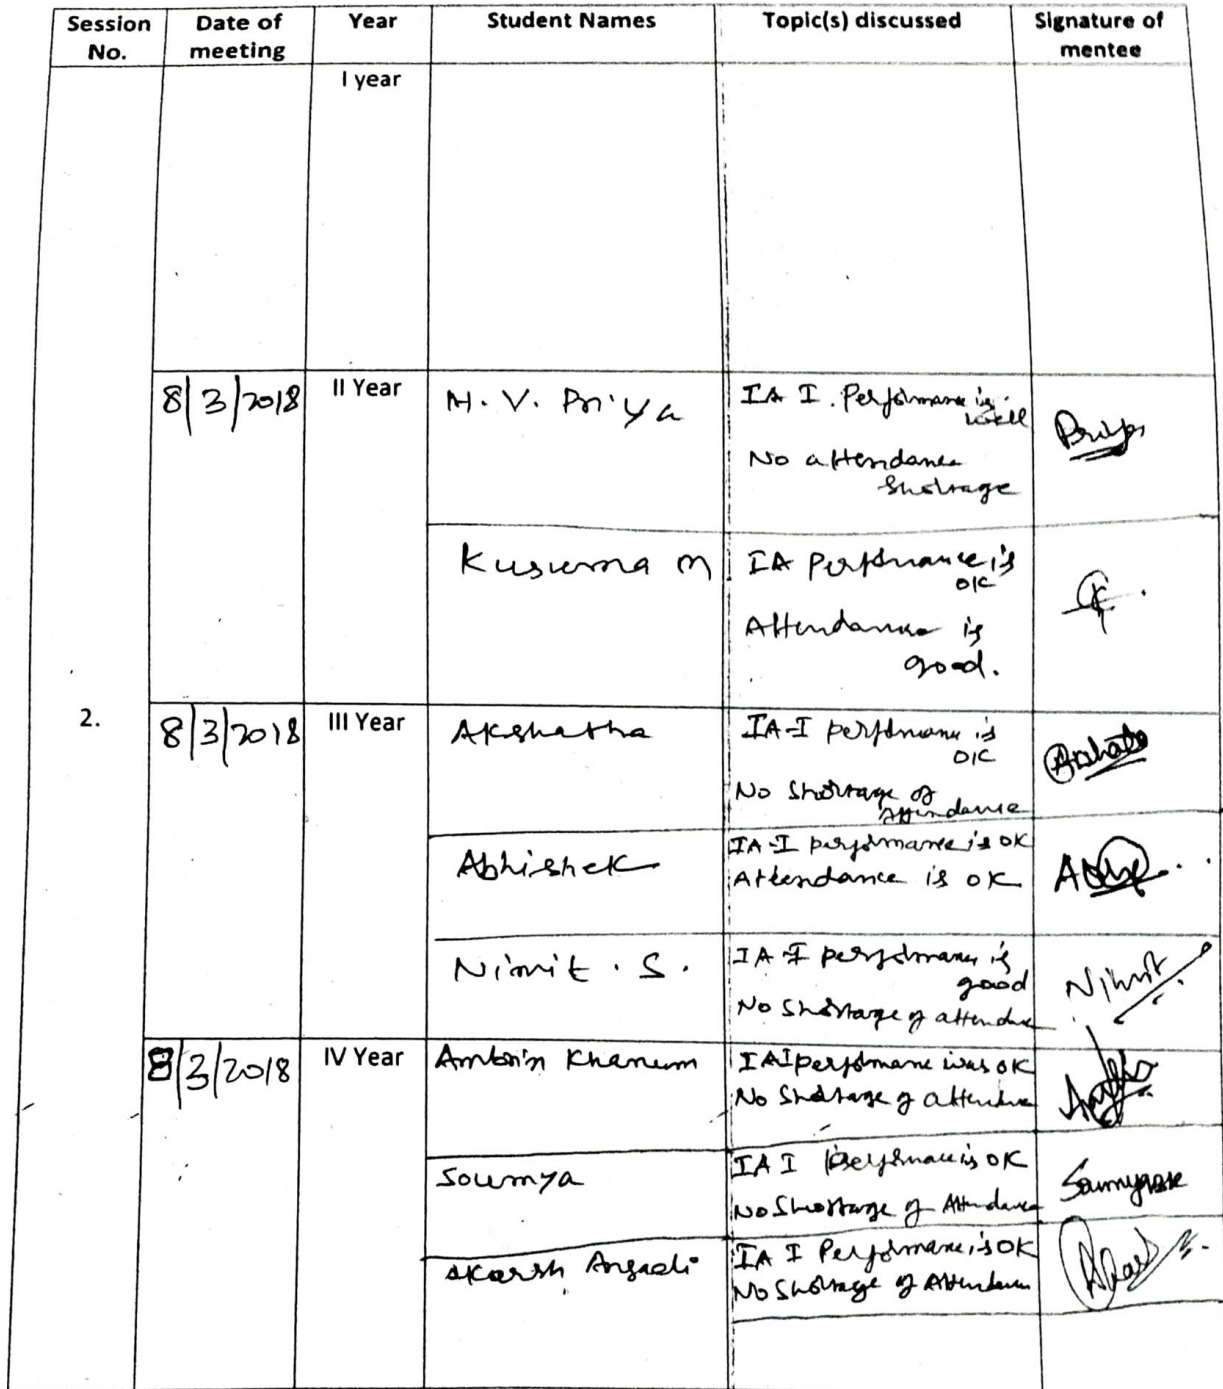 Session No. Date of meeting Year Student Names Topic(s) discussed Signature of mentee
I year
8/3/2018 II Year H. V. Priya IA I. Performance is well
No attendance Shortage
Priya
Kusuma M IA Performance is OK
Attendance is good.
2. 8/3/2018 III Year Akshatha IA-I performance is OK
No Shortage of Attendance
Abhishek IA-I performance is OK
Attendance is OK
Nimit . S. IA-I performance is good
No Shortage of attendance
Nimit
8/3/2018 IV Year Ambrin Khanum IA I performance was OK
No Shortage of attendance
Soumya IA I Performance is OK
No Shortage of Attendance
Akarsh Angadi IA I Performance is OK
No Shortage of Attendance